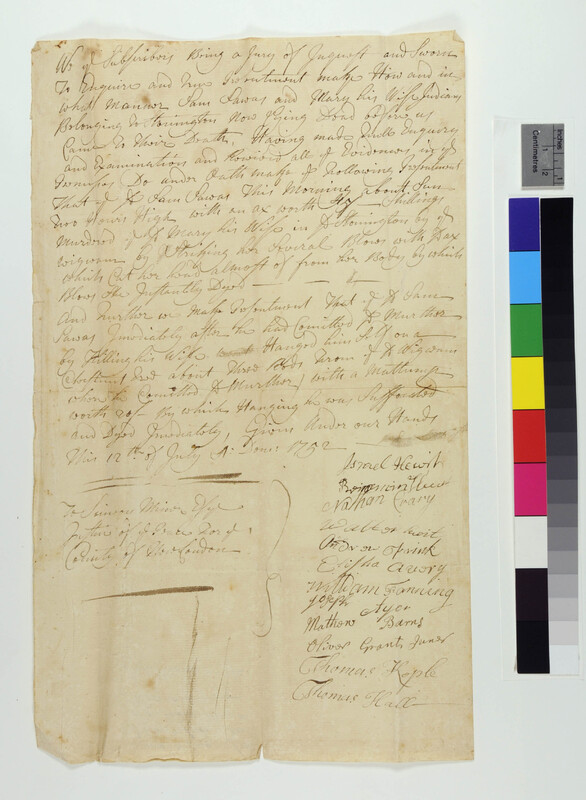 We ye Subscribers Being a Jury of Inquest and Sworn
To Enquire and true Presentment make How and in
what Manner Sam Sawas and Mary his Wife Indians
Belonging to Stonington Now Lying Dead before us
Came to Their Death, Having made Enquiry
and Examination and all ye Evidences in ye
Do under Oath make ye Following Presentment
That ye sd Sam Sawas This Morning about Sun
two Hours High with an ax worth Shillings
Murdered sd Mary his Wife in sd Stonington by ye
wigwam by Striking her Several Blows with sd ax
which Cut her head almost of from her Body by which
Blows She Instantly Dyed
And further we Make Presentment That ye sd Sam
Sawas Imediately after he had Comitted sd Murther
by Killing his Wife Hanged him Self on a
Chestnut tree about Three Rods from ye sd Wigwam
where he Comitted sd Murther with a
worth by which Hanging he was Suffocated
and Dyed Imediately, Given Under our Hands
This 12th of July A: Dom: 1752
Israel Hewitt
Nathan Crary
Elisha Avery
William Fanning
Joseph Ayer
Mathew Barns
Oliver Grant Junr
Thomas
Thomas Hall
To Simeon Minor Esqr
Justice of ye Peace For ye
County of New London
Centimetres